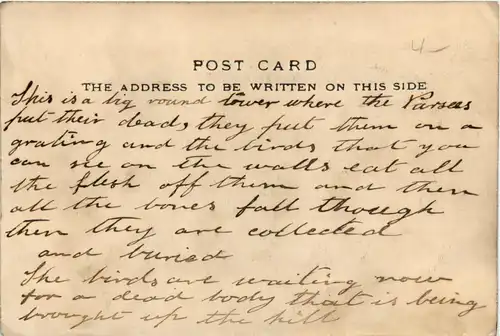 4
POST CARD
THE ADDRESS TO BE WRITTEN ON THIS SIDE
This is a big round tower where the Parsees
put their dead, they put them on a
grating and the birds that you
can see on the walls eat all
the flesh off them and then
all the bones fall though
then they are collected
and buried
The birds are waiting now
for a dead body that is being
brought up the hill